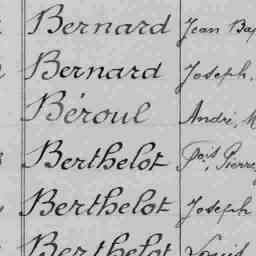 Bernard Jean Bap
Bernard Joseph.
Béroul André, M
Berthelot Fçois Pierre,
Berthelot Joseph
Berthelot Louis